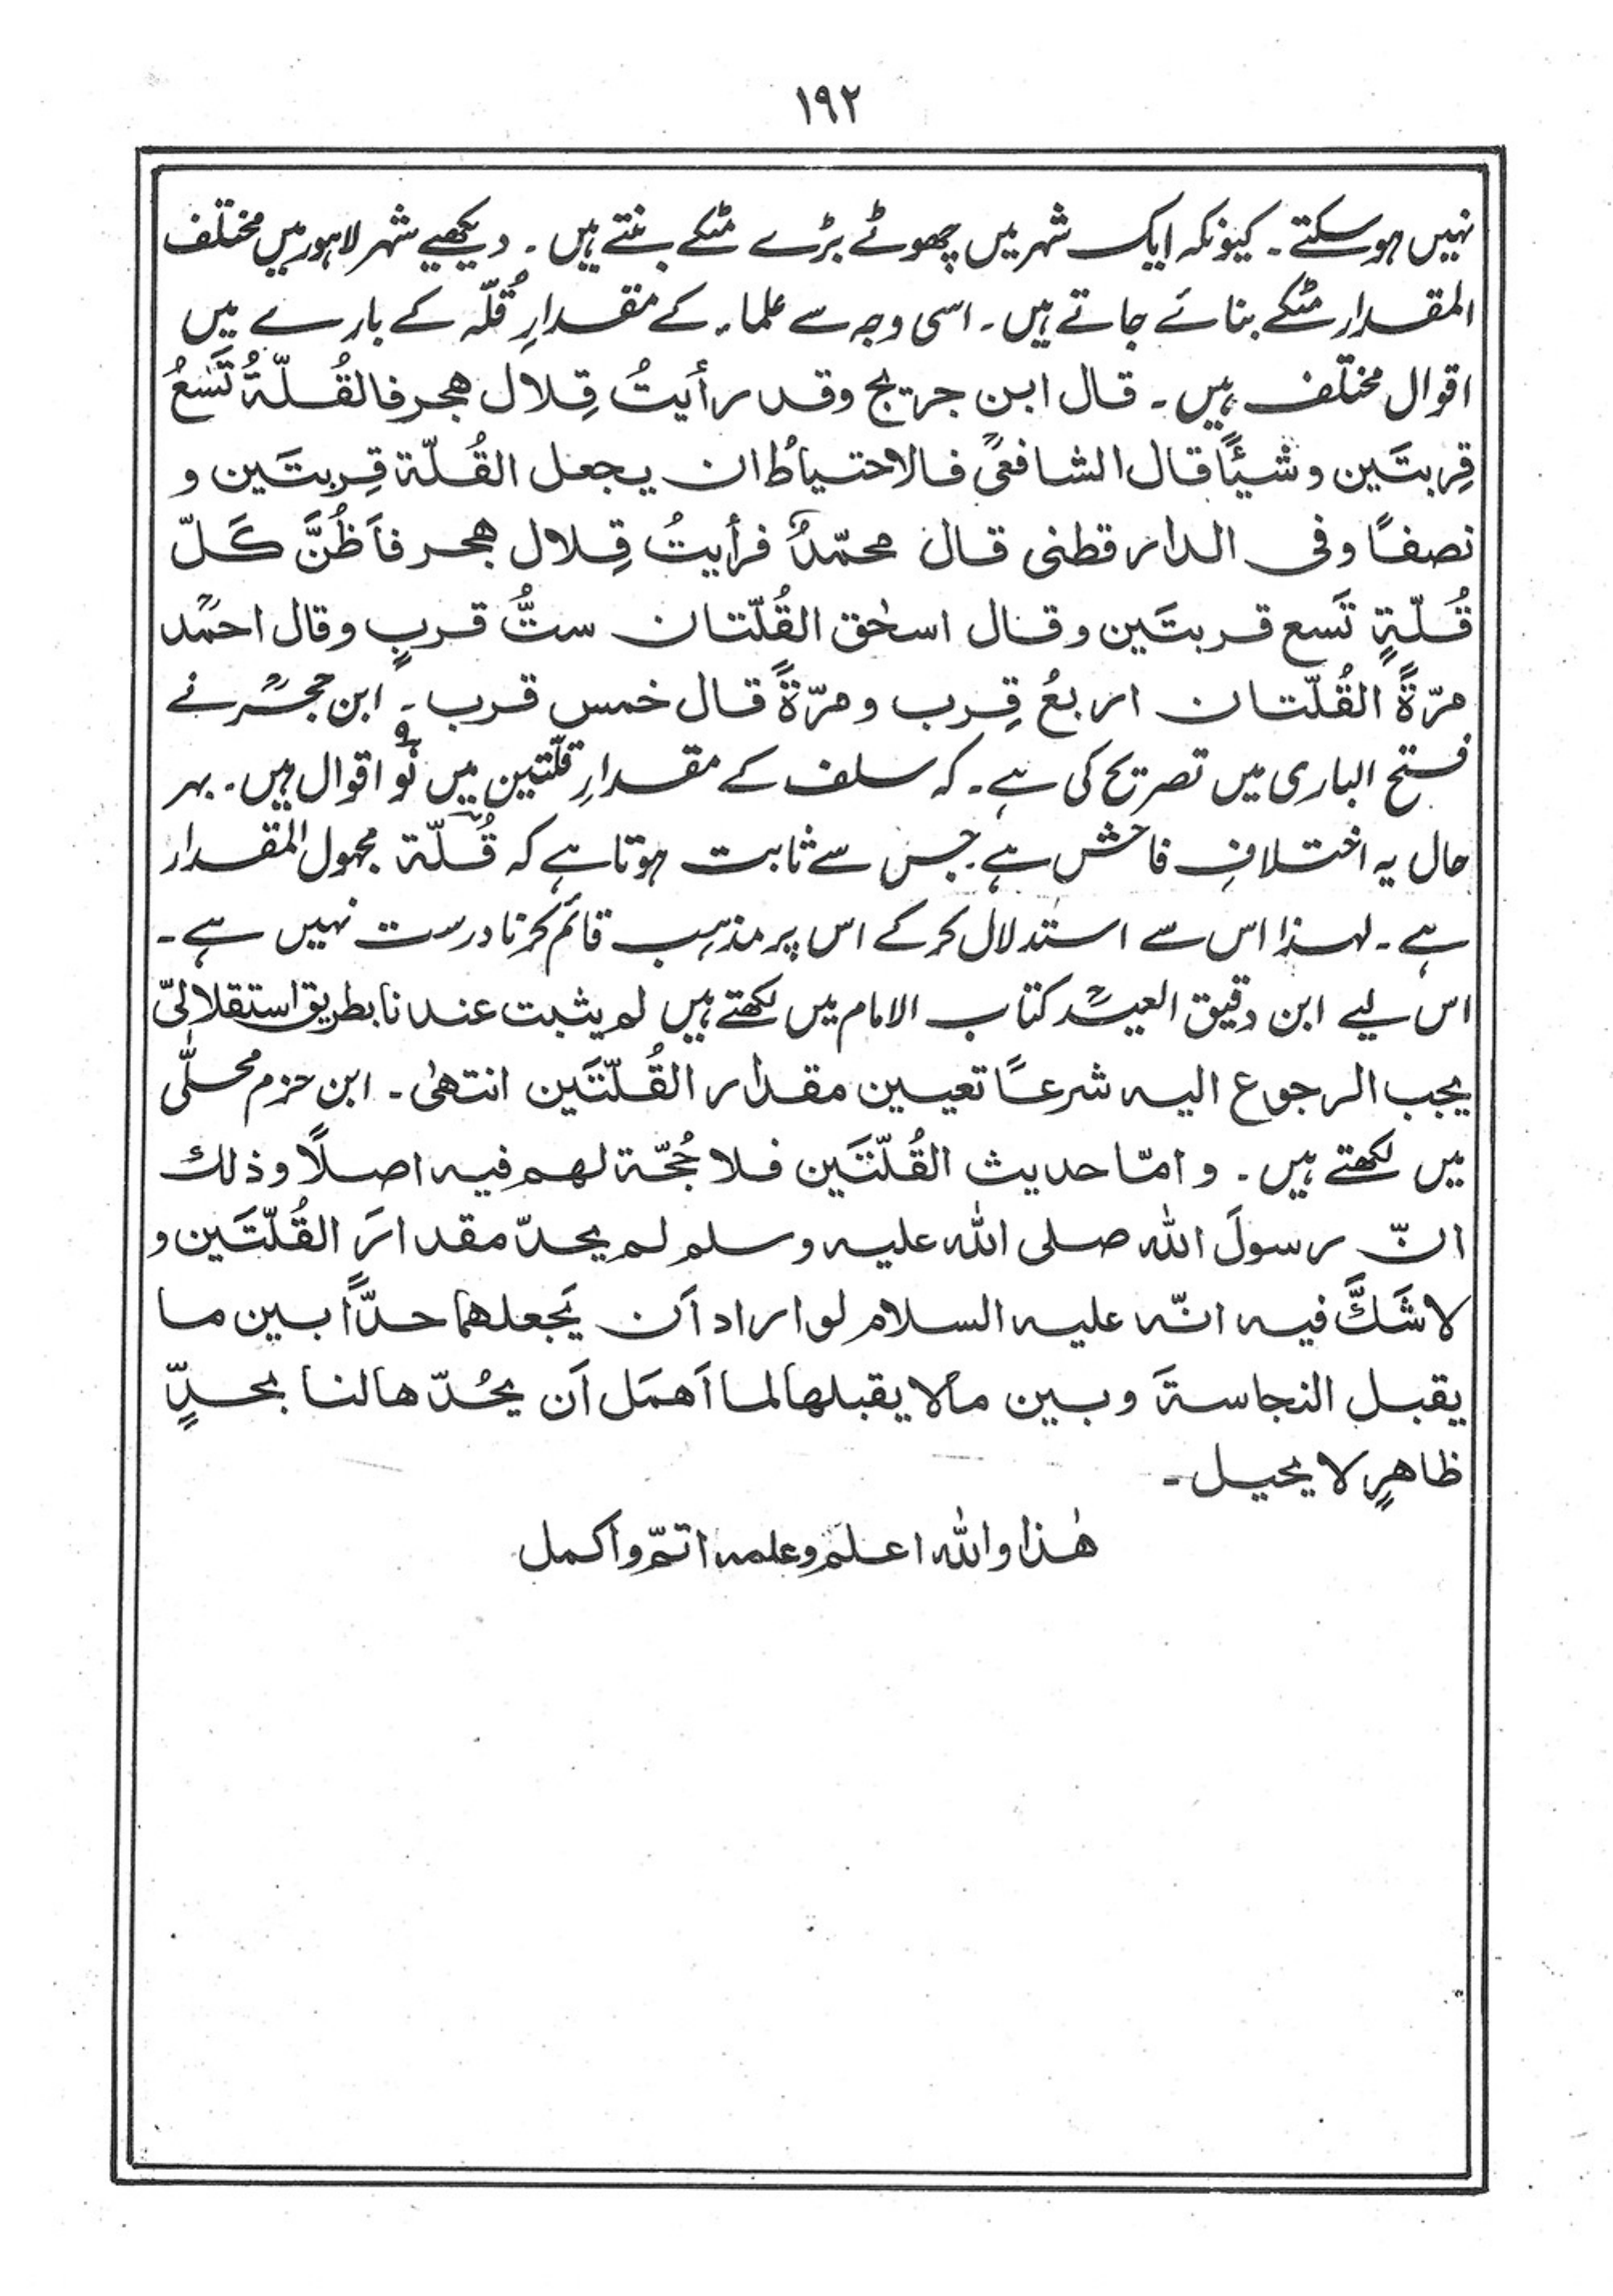 ١٩٢
نہیں ہوسکتے۔ کیونکہ ایک شہر میں چھوٹے بڑے مٹکے بنتے ہیں۔ دیکھیے شہر لاہور میں مختلف
المقدار مٹکے بنائے جاتے ہیں۔ اسی وجہ سے علماء کے مقدارِ قُلّہ کے بارے میں
اقوال مختلف ہیں۔ قال ابن جریج وقد رأیتُ قِلال ھجر فالقُلّةُ تَسَعُ
قِربتَین وشیئًا قال الشافعیؒ فالاحتیاطُ ان یجعل القُلّة قِربتَین و
نصفًا وفی الدار قطنی قال محمّدؒ فرأیتُ قِلال ھجر فاَظُنَّ کَلّ
قُلّةٍ تَسع قربتَین وقال اسحٰق القُلّتان ستُّ قربٍ وقال احمدؒ
مرّةً القُلّتان اربعُ قِرب ومرّةً قال خمس قرب۔ ابن حجرؒ نے
فتح الباری میں تصریح کی ہے۔ کہ سلف کے مقدارِ قلّتین میں نَو ۹ اقوال ہیں۔ بہر
حال یہ اختلافِ فاحش ہے۔ جس سے ثابت ہوتا ہے کہ قُلّة مجہول المقدار
ہے۔ لہذا اس سے استدلال کرکے اس پر مذہب قائم کرنا درست نہیں ہے۔
اس لیے ابن دقیق العیدؒ کتاب الامام میں لکھتے ہیں لم یثبت عندنا بطریق استقلالیّ
یجب الرجوع الیہ شرعًا تعیین مقدار القُلّتَین انتھٰی۔ ابن حزم محلّٰی
میں لکھتے ہیں۔ وامّا حدیث القُلّتَین فلا حُجّة لھم فیہ اصلًا وذلك
انّ رسولَ اللہ صلی اللہ علیہ وسلم لم یحدّ مقدارَ القُلّتَین و
لاشَكَّ فیہ انّہ علیہ السلام لو اراد اَن یَجعلھما حدًّا بین ما
یقبل النجاسةَ وبین مالا یقبلھا لما اَھمَل اَن یحُدّھا لنا بحدٍّ
ظاھرٍ لا یحیل۔
ھٰذا واللہ اعلم وعلمہ اتمّ واکمل